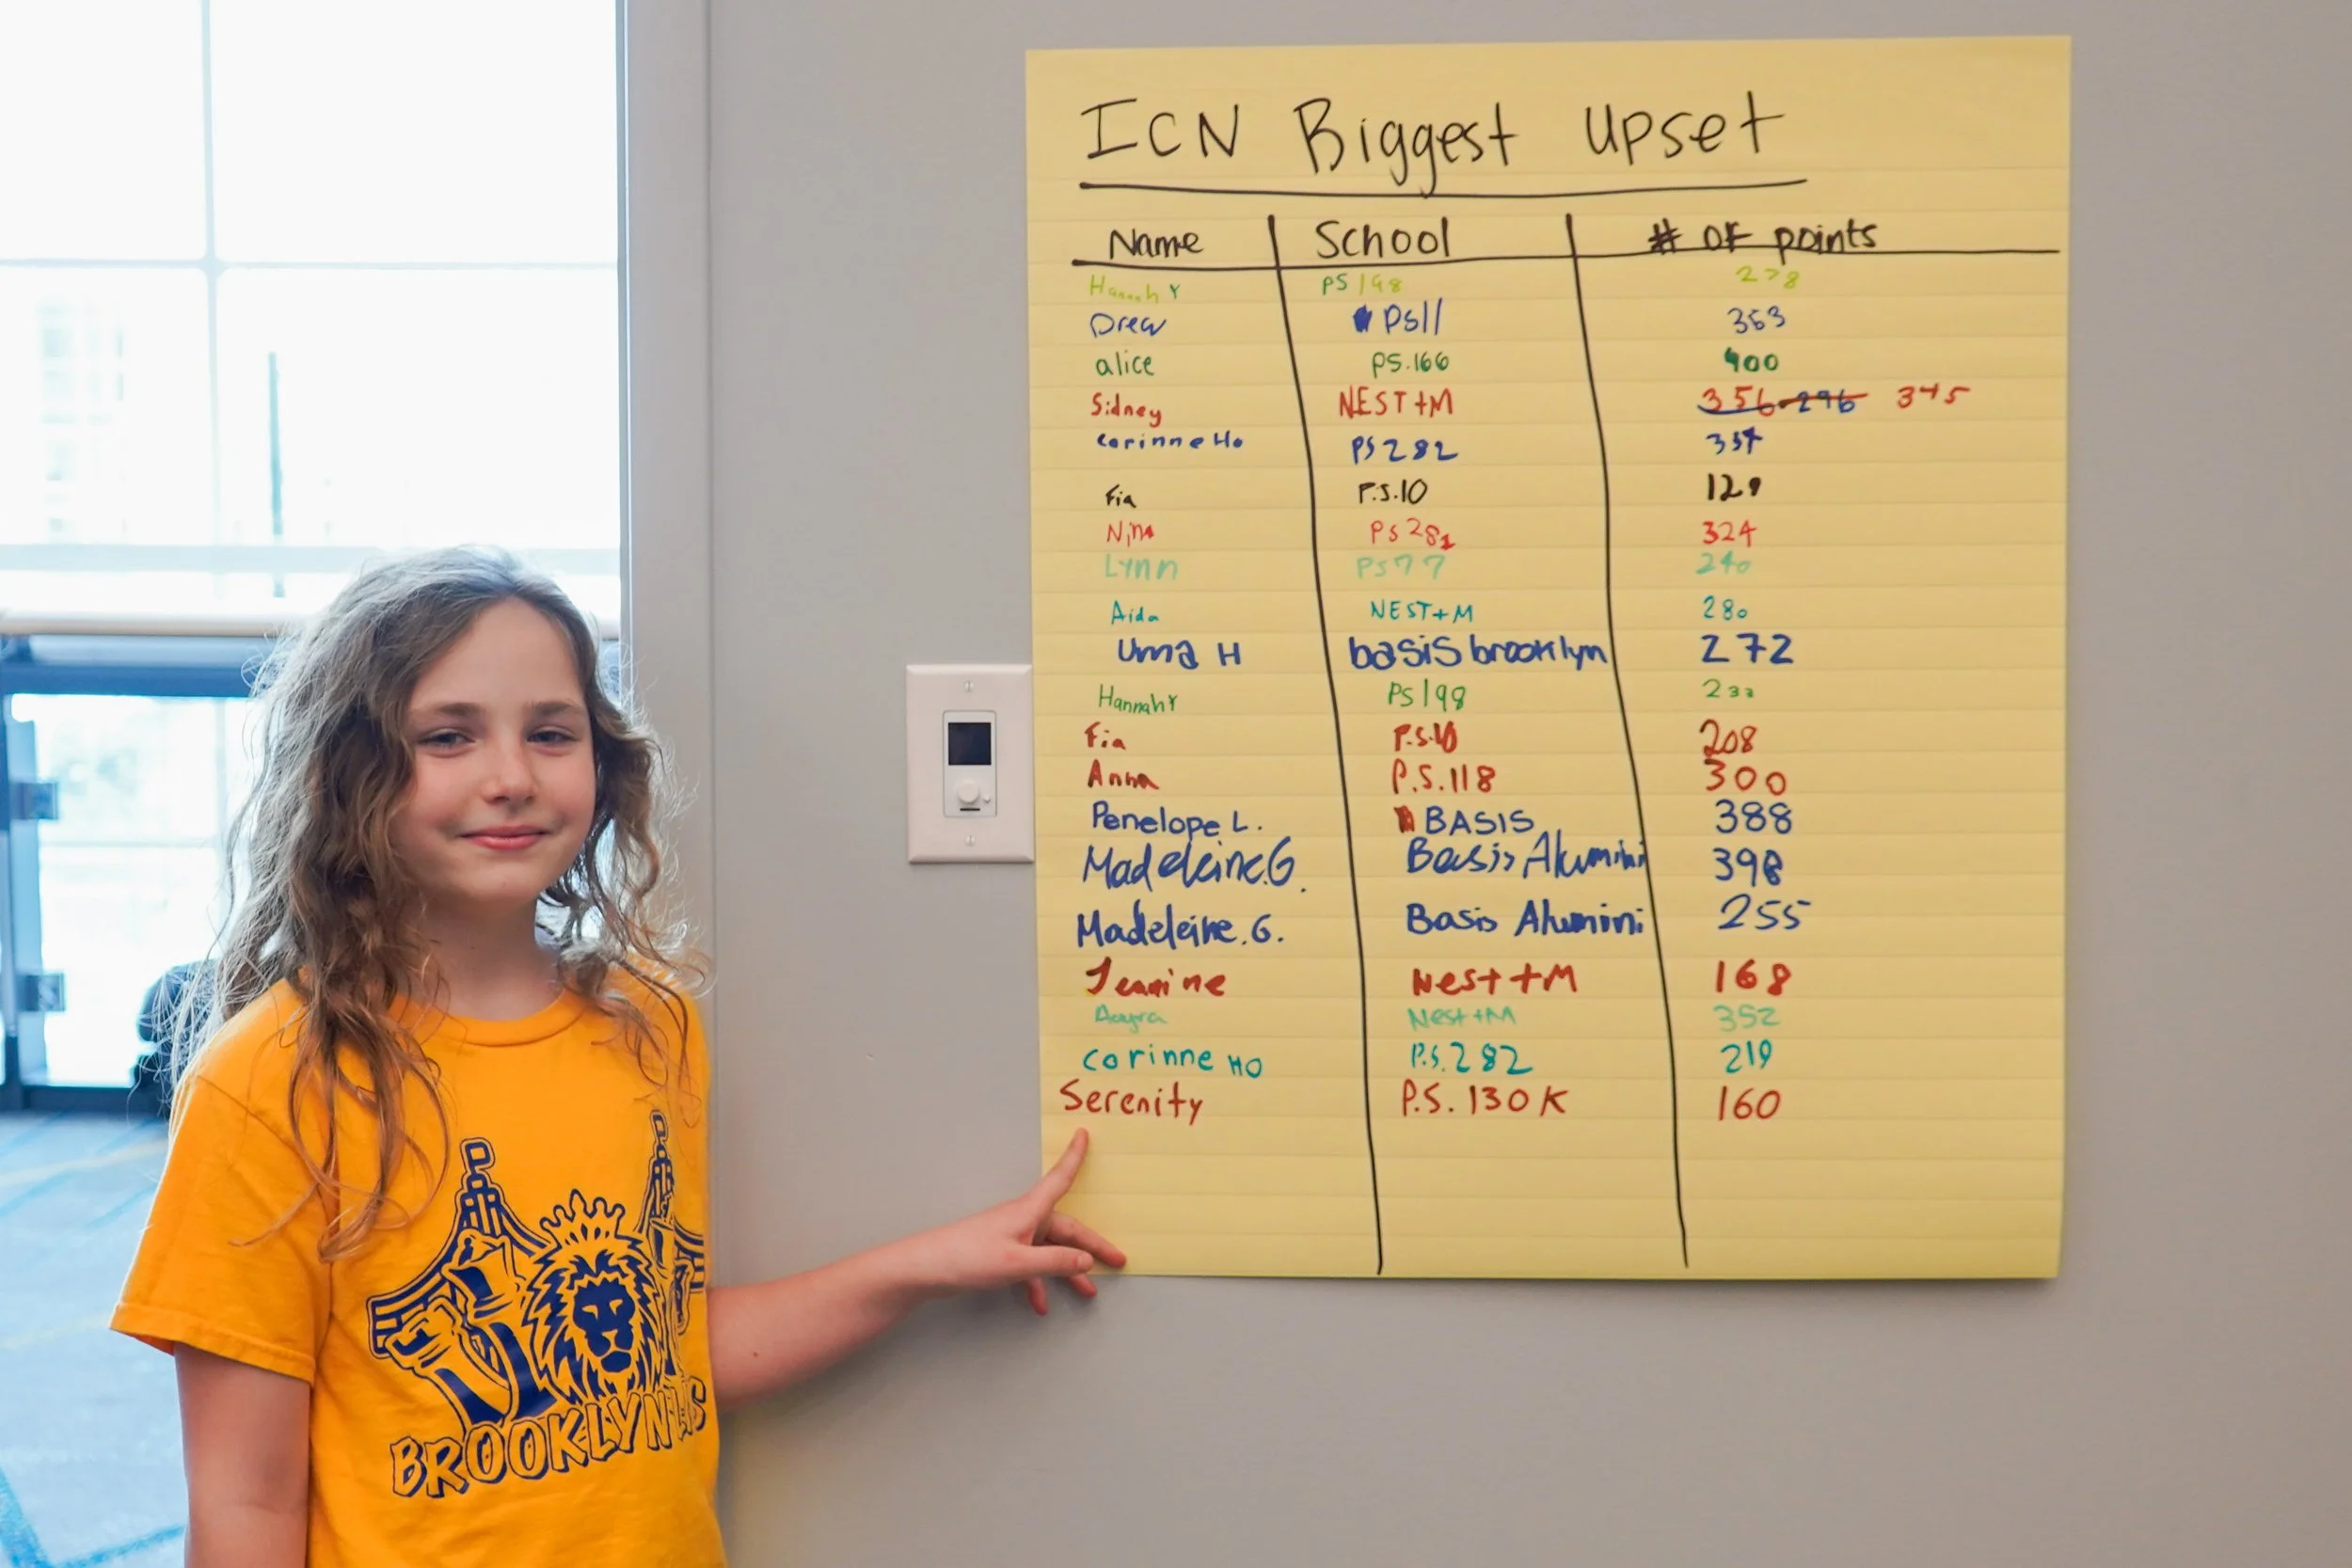 ICN Biggest Upset
Name School # OF points
Hannah Y PS 198 278
Drew PS11 353
alice PS.166 400
Sidney NEST+M 356 296 345
Corinne Ho PS 282 337
Fia P.S.10 129
Nina PS 281 324
Lynn PS77 240
Aida NEST+M 280
Uma H basis brooklyn 272
Hannah Y PS 198
Fia P.S.10 208
Anna P.S.118 300
Penelope L. BASIS 388
Madeleine.G. Basis Alumini 398
Madeleine.G. Basis Alumini 255
Jeanine Nest+M 168
Nest+M 352
Corinne HO P.S.282 219
Serenity P.S. 130K 160
BROOKLYN